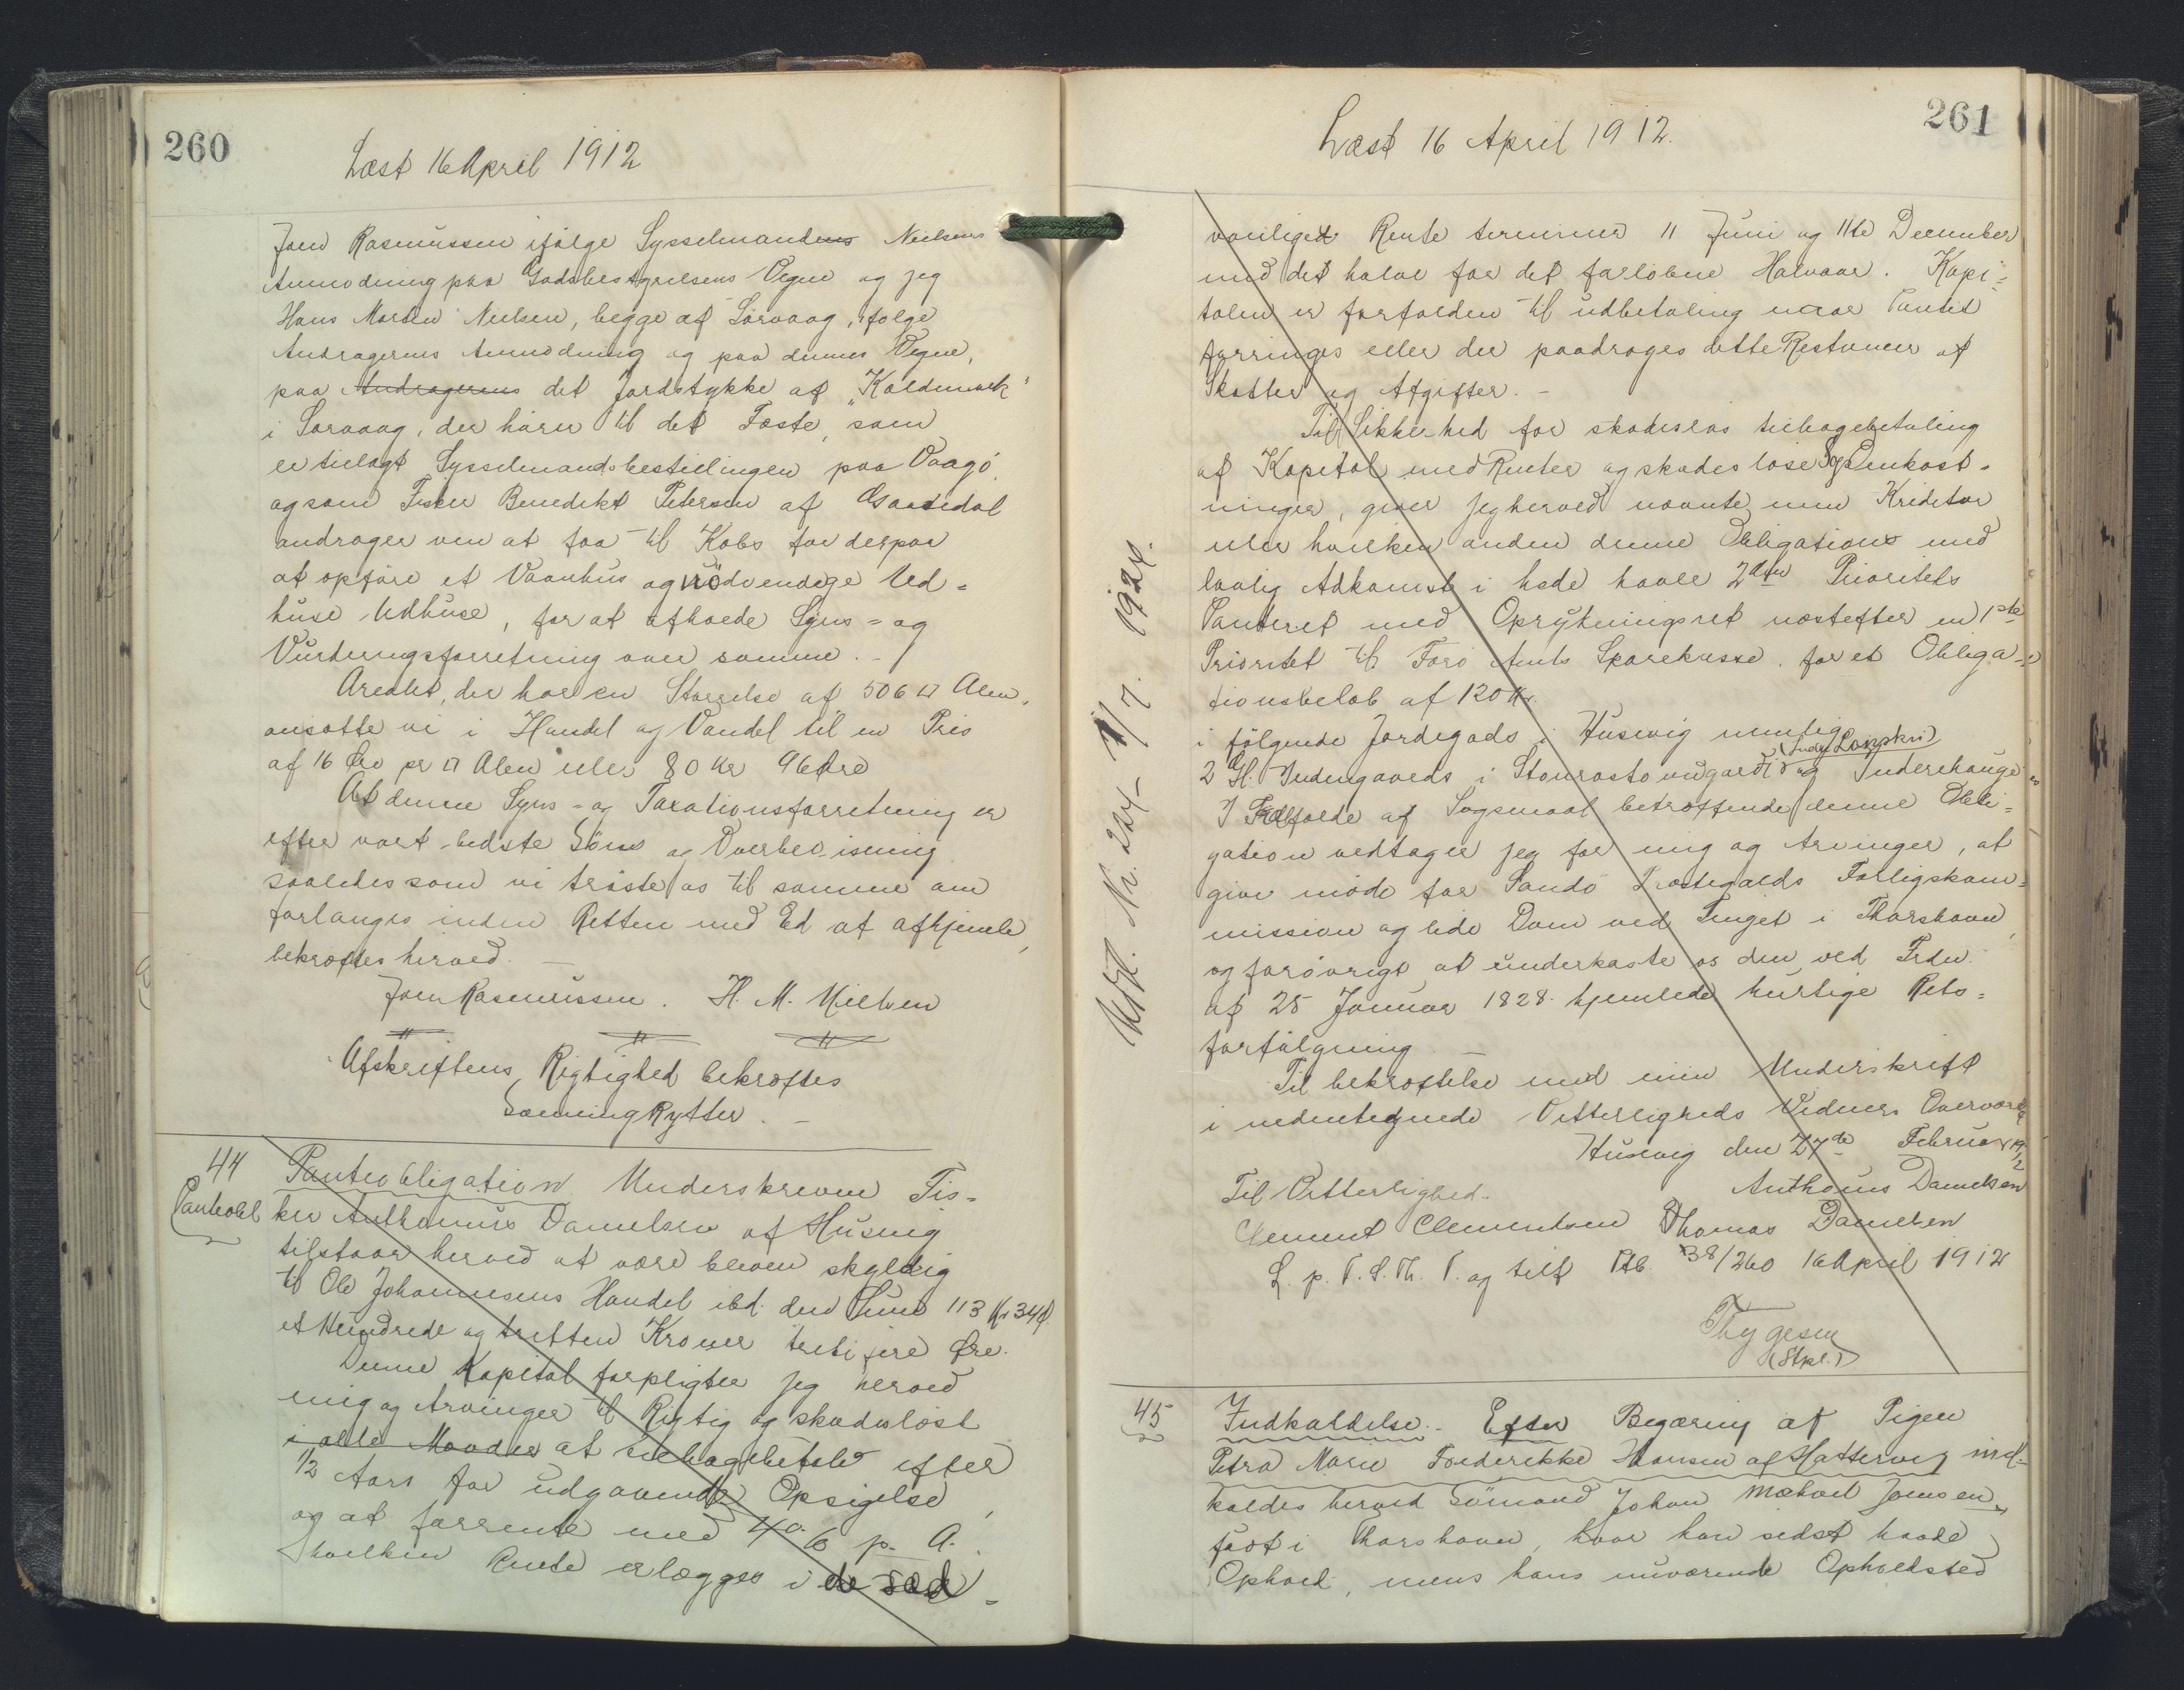 260
Læst 16 April 1912
Joen Rasmussen ifølge Sysselmandens Nielsens
Anmodning paa Godsbestyrelsens Vegne og jeg
Hans Morten Nielsen, begge af Sørvaag, ifølge
Andragerens Anmodning og paa dennes Vegne,
paa Andragerens det Jordstykke af "Koldemark"
i Sørvaag, der hører til det Fæste, som
er tillagt Sysselmandsbestillingen paa Vaagø,
og som Fisker Benedikt Petersen af Gaasedal
andrager om at faa til Købs for derpaa
at opføre et Vaanhus og nødvendige Ud-
huse Udhuse, for at afholde Syns- og
Vurderingsforretning over samme. -
Arealet, der har en Størrelse af 506 □ Alen,
ansatte vi i Handel og Vandel til en Pris
af 16 Øre pr □ Alen eller 80 Kr 96 Øre
At denne Syns- og Taxationsforretning er
efter vort bedste Skøn og Overbevisning
saaledes som vi trøste os til samme om
forlanges inden Retten med Ed at afhjemle,
bekræftes herved. -
Joen Rasmussen. H. M. Nielsen
Afskriftens Rigtighed bekræftes
Sonning Rytter. -
44
Pantobl
Panteobligation. Underskrevne Fis-
ker Anthonius Danielsen af Husevig
tilstaar herved at være bleven skyldig
til Ole Johannesens Handel ibd. den Sum 113 Kr 34 Ø.
et Hundrede og tretten Kroner treti fire Øre.
Denne Kapital forpligter jeg herved
mig og Arvinger til Rigtig og skadesløst
i alle Maader at tilbagebetale efter
1/2 Aars for udgaaende Opsigelse,
og at forrente med 4 % p. A.
hvilken Rente erlægges i de sæd-
261
Læst 16 April 1912.
vanliget Rente terminer 11 Juni og 11te December
med det halve for det forløbne Halvaar. Kapi-
talen er forfalden til udbetaling naar Pantet
forringes eller der paadrages dette Restancer af
Skatter og Afgifter. -
Til Sikkerhed for skadesløs tilbagebetaling
af Kapital med Renter og skadesløse Sagsomkost-
ninger, giver jeg herved nævnte min Kreditor
eller hvilken anden denne Obligations med
lovlig Adkomst i hede havde 2den Prioritets
Panteret med Oprykningsret næstefter en 1ste
Prioritet til Færø Amts Sparekasse for et Obliga-
tionsbeløb af 120 Kr.
i følgende Jordegods i Husevig nemlig
2 Gl. Indengaards i Stourasto vidgardi og Inderehauge
I Tilfælde af Søgsmaal betræffende denne Obli-
gation vedtager jeg for mig og Arvinger, at
give møde for Sandø Præstegjælds Forligskom-
mission og lide Dom ved Tinget i Thorshavn,
og forøvrigt at underkaste os den ved Frdn.
af 25 Januar 1828 hjemlede hurtige Rets-
forfølgning -
Til bekræftelse med min Underskrift
i nedentegnede Vitterligheds Vidners Overværelse
Husevig den 27de Februar 1912
Til Vitterlighed. Anthonius Danielsen
Clement Clementsen Thomas Danielsen
L. p. T. S. Th. P. og tilf Ptb. 38/260 16 April 1912
Thygesen
(Stpl.)
Udsl. Nr. 224 - 7/7. 1928.
45
Indkaldelse. Efter Begæring af Pigen
Petra Marie Frederikke Hansen af Hattervig ind-
kaldes herved Sømand Johan Michael Joensen,
født i Thorshavn, hvor han sidst havde
Ophold, mens hans nuværende Opholdsted